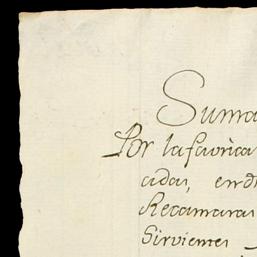 Suma
Por la favrica
cidas, en d
Recamaras
Sirvientes